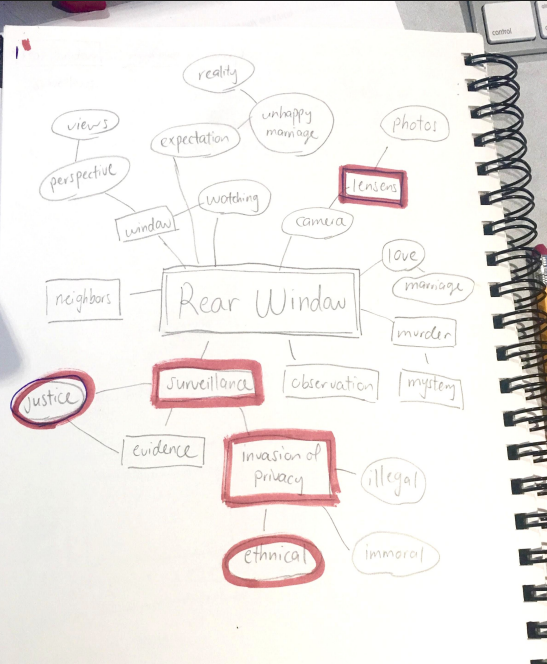 control
reality
views
expectation
unhappy
marriage
photos
perspective
lensens
watching
window
camera
love
marriage
neighbors
Rear Window
murder
surveillance
observation
mystery
justice
evidence
invasion of
privacy
illegal
ethnical
immoral